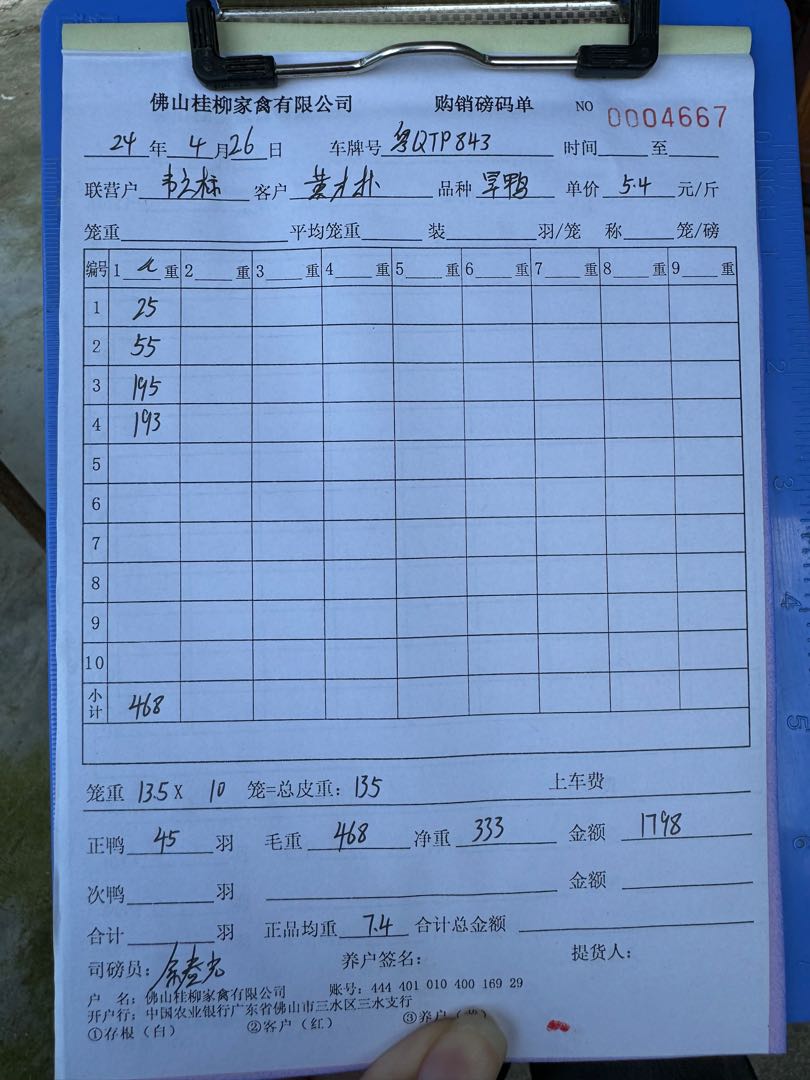 佛山桂柳家禽有限公司 购销磅码单 NO 0004667
24 年 4 月 26 日 车牌号 粤QTP843 时间 至
联营户 韦立标 客户 品种 旱鸭 单价 5.4 元/斤
笼重 平均笼重 装 羽/笼 称 笼/磅
编号 1 重 2 重 3 重 4 重 5 重 6 重 7 重 8 重 9 重
1 25
2 55
3 195
4 193
5
6
7
8
9
10
小计 468
笼重 13.5 X 10 笼=总皮重: 135 上车费
正鸭 45 羽 毛重 468 净重 333 金额 1798
次鸭 羽 金额
合计 羽 正品均重 7.4 合计总金额
司磅员: 养户签名: 提货人:
户 名: 佛山桂柳家禽有限公司 账号: 444 401 010 400 169 29
开户行: 中国农业银行广东省佛山市三水区三水支行
①存根(白) ②客户(红) ③养户